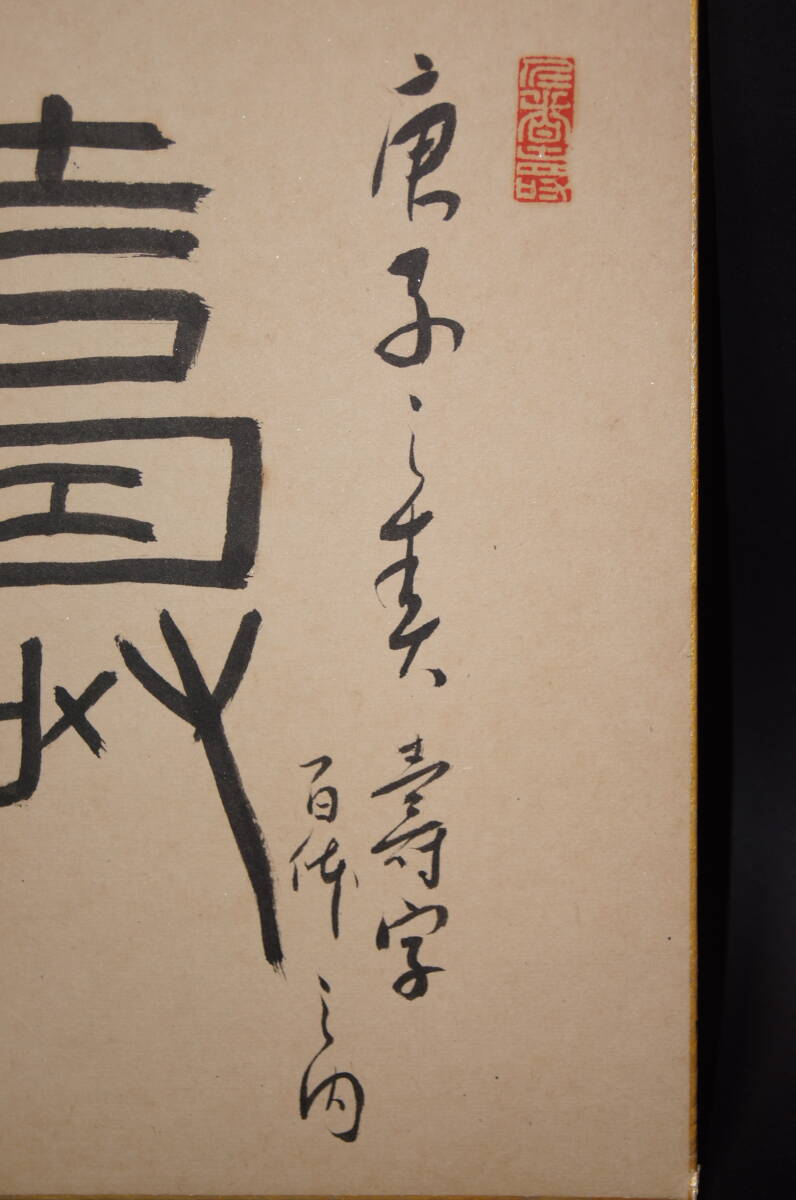 庚子之春
壽字
百体之内
壽